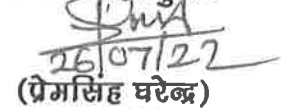 26/07/22
(प्रेमसिंह घरेन्द्र)